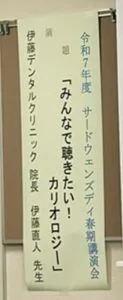 令和7年度 サードウェンズデイ春期講演会
演題
「みんなで聴きたい!
カリオロジー」
伊藤デンタルクリニック 院長 伊藤直人 先生